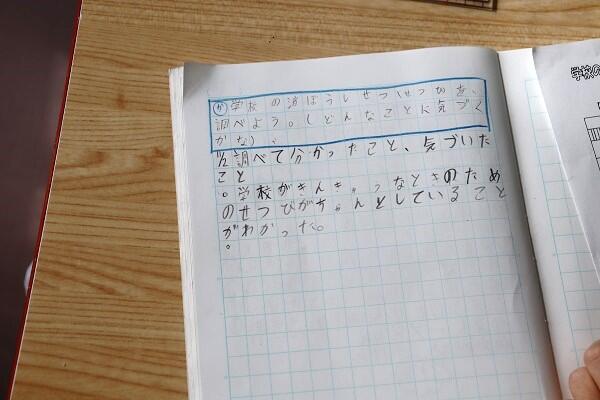 か 学校の消ぼうしせつ(せつび)を、
調べよう。(どんなことに気づく
かな)、
調べて分かったこと、気づいた
こと
。学校がきんきゅうなときのため
のせつびがちゃんとしていること
がわかった。
。
学校の